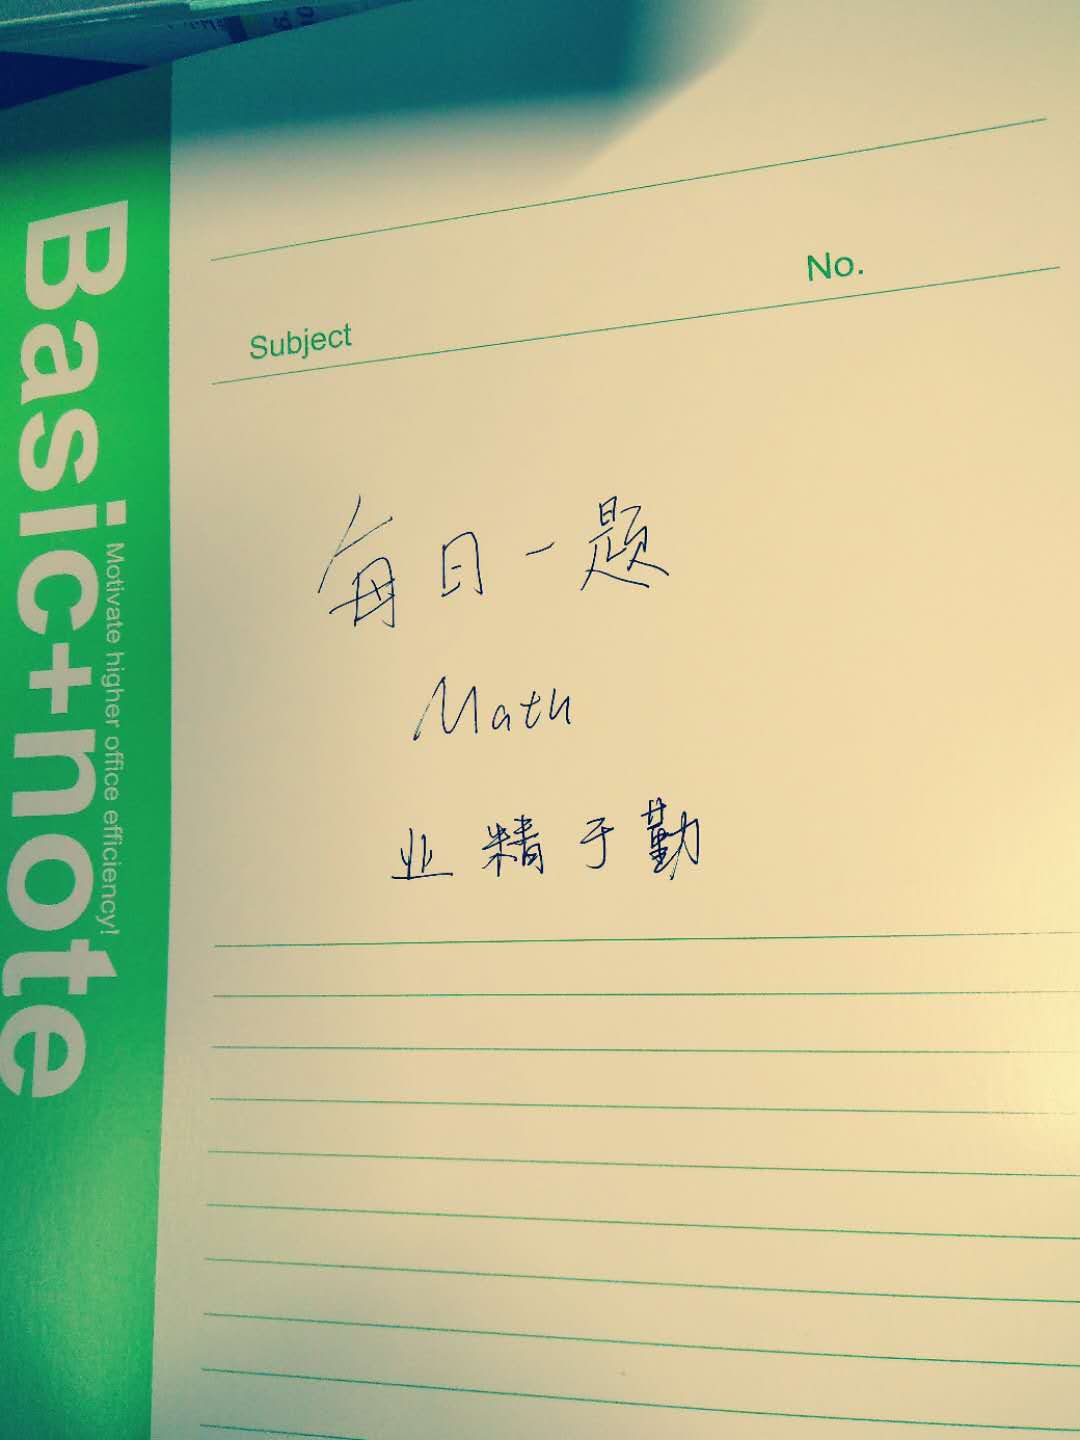 Basic+note
Motivate higher office efficiency!
No.
Subject
每日一题
Math
业精于勤